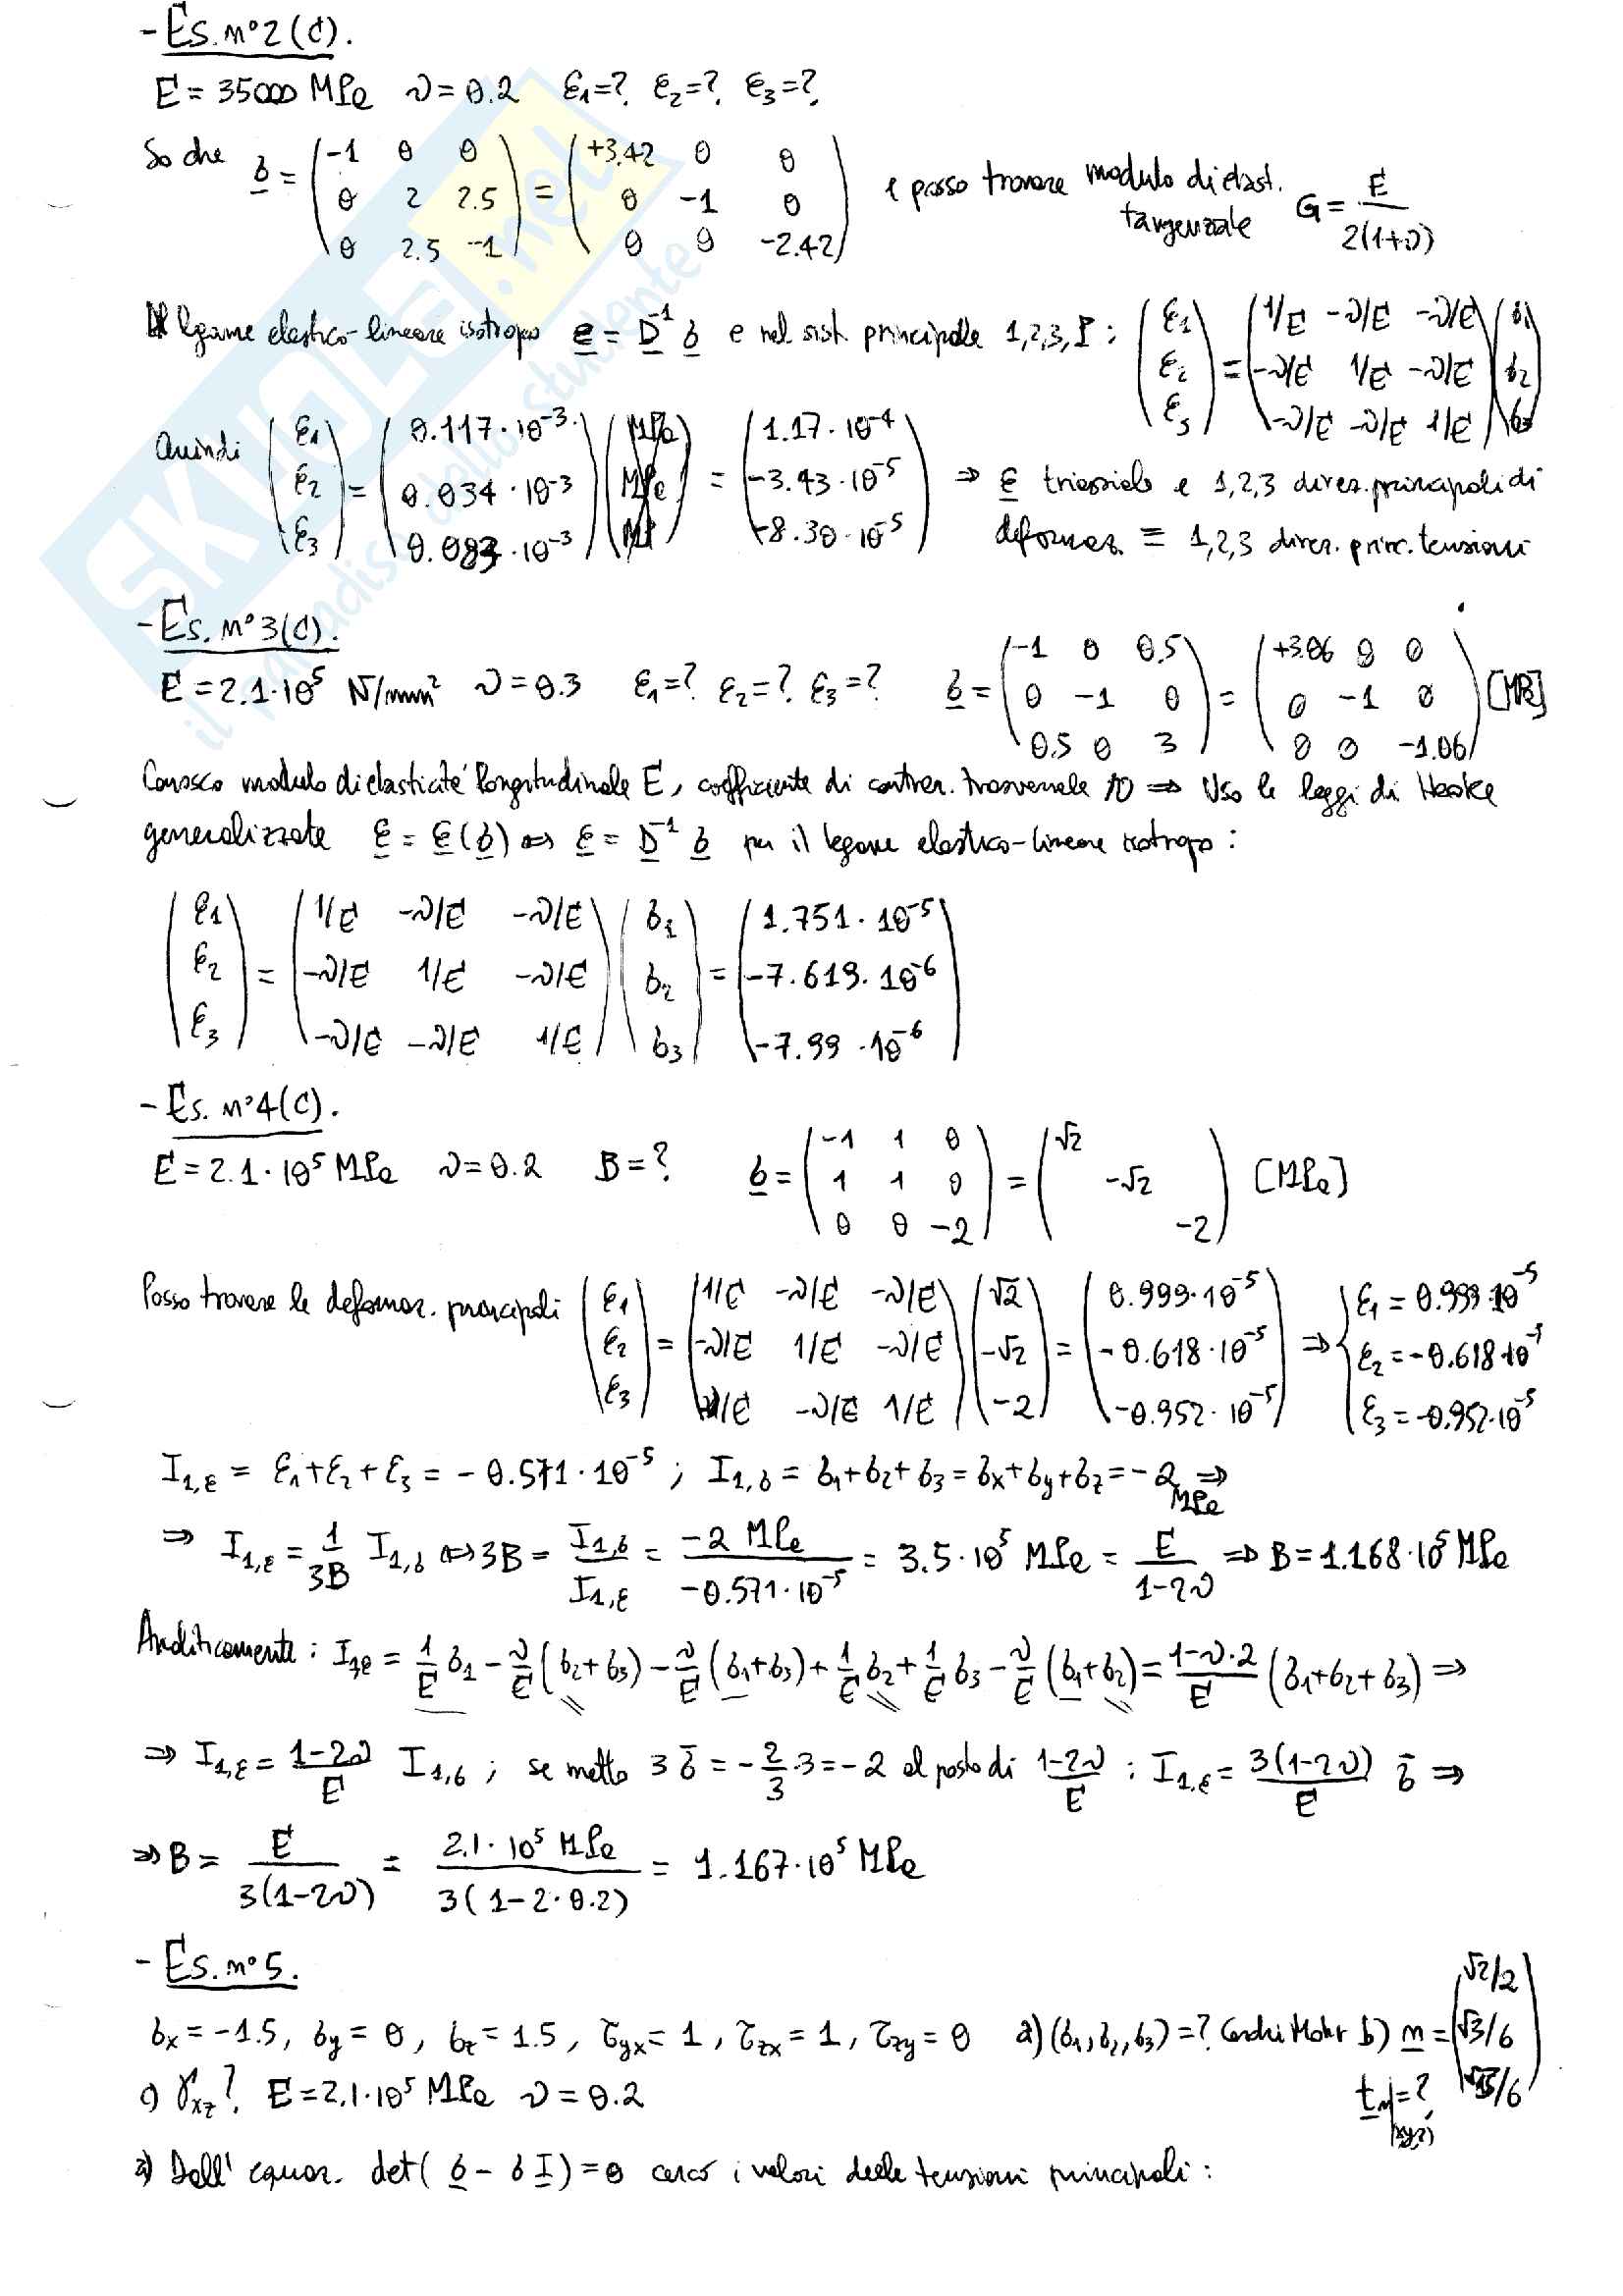 - Es. n°2(C).
E = 35000 MPa ν = 0.2 ε1=? ε2=? ε3=?
So che σ = (-1 0 0; 0 2 2.5; 0 2.5 -1) = (+3.42 0 0; 0 -1 0; 0 0 -2.42) e posso trovare modulo di elast. tangenziale G = E/2(1+ν)
Il legame elastico-lineare isotropo ε = D⁻¹ σ e nel sist. principale 1,2,3,P : (ε1; ε2; ε3) = (1/E -ν/E -ν/E; -ν/E 1/E -ν/E; -ν/E -ν/E 1/E)(σ1; σ2; σ3)
Quindi (ε1; ε2; ε3) = (0.117·10⁻³; 0.034·10⁻³; 0.083·10⁻³) = (1.17·10⁻⁴; -3.43·10⁻⁵; -8.30·10⁻⁵) ⇒ ε triassiale e 1,2,3 direz. principali di
deformaz. ≡ 1,2,3 direz. princ. tensioni
- Es. n°3(C).
E = 2.1·10⁵ N/mm² ν = 0.3 ε1=? ε2=? ε3=? σ = (-1 0 0.5; 0 -1 0; 0.5 0 3) = (+3.06 0 0; 0 -1 0; 0 0 -1.06) [MPa]
Conosco modulo di elasticità longitudinale E, coefficiente di contraz. trasversale ν ⇒ Uso le leggi di Hooke
generalizzate ε = ε(σ) ⇔ ε = D⁻¹ σ per il legame elastico-lineare isotropo :
(ε1; ε2; ε3) = (1/E -ν/E -ν/E; -ν/E 1/E -ν/E; -ν/E -ν/E 1/E)(σ1; σ2; σ3) = (1.751·10⁻⁵; -7.619·10⁻⁶; -7.99·10⁻⁶)
- Es. n°4(C).
E = 2.1·10⁵ MPa ν = 0.2 B = ? σ = (-1 1 0; 1 1 0; 0 0 -2) = (√2; -√2; -2) [MPa]
Posso trovare le deformaz. principali (ε1; ε2; ε3) = (1/E -ν/E -ν/E; -ν/E 1/E -ν/E; -ν/E -ν/E 1/E)(√2; -√2; -2) = (0.999·10⁻⁵; -0.618·10⁻⁵; -0.952·10⁻⁵) ⇒ { ε1 = 0.999·10⁻⁵ ε2 = -0.618·10⁻⁵ ε3 = -0.952·10⁻⁵
I1,ε = ε1+ε2+ε3 = -0.571·10⁻⁵ ; I1,σ = σ1+σ2+σ3 = σx+σy+σz = -2 MPa ⇒
⇒ I1,ε = 1/3B I1,σ ⇔ 3B = I1,σ/I1,ε = -2 MPa/-0.571·10⁻⁵ = 3.5·10⁵ MPa = E/1-2ν ⇒ B = 1.168·10⁵ MPa
Analiticamente : I1,ε = 1/E σ1 - ν/E (σ2+σ3) - ν/E (σ1+σ3) + 1/E σ2 + 1/E σ3 - ν/E (σ1+σ2) = 1-ν·2/E (σ1+σ2+σ3) ⇒
⇒ I1,ε = 1-2ν/E I1,σ ; se metto 3σ̄ = -2/3·3 = -2 al posto di 1-2ν/E : I1,ε = 3(1-2ν)/E σ̄ ⇒
⇒ B = E/3(1-2ν) = 2.1·10⁵ MPa/3(1-2·0.2) = 1.167·10⁵ MPa
- Es. n°5.
σx = -1.5, σy = 0, σz = 1.5, τyx = 1, τzx = 1, τzy = 0 a) (σ1,σ2,σ3) = ? Cerchi Mohr b) n = (√2/2; √3/6; √15/6)
c) γxz? E = 2.1·10⁵ MPa ν = 0.2 tn|(x,y,z) = ?
a) Dall' equaz. det(σ - σI) = 0 cerco i valori delle tensioni principali :
SKUOLA.net
il paradiso dello studente